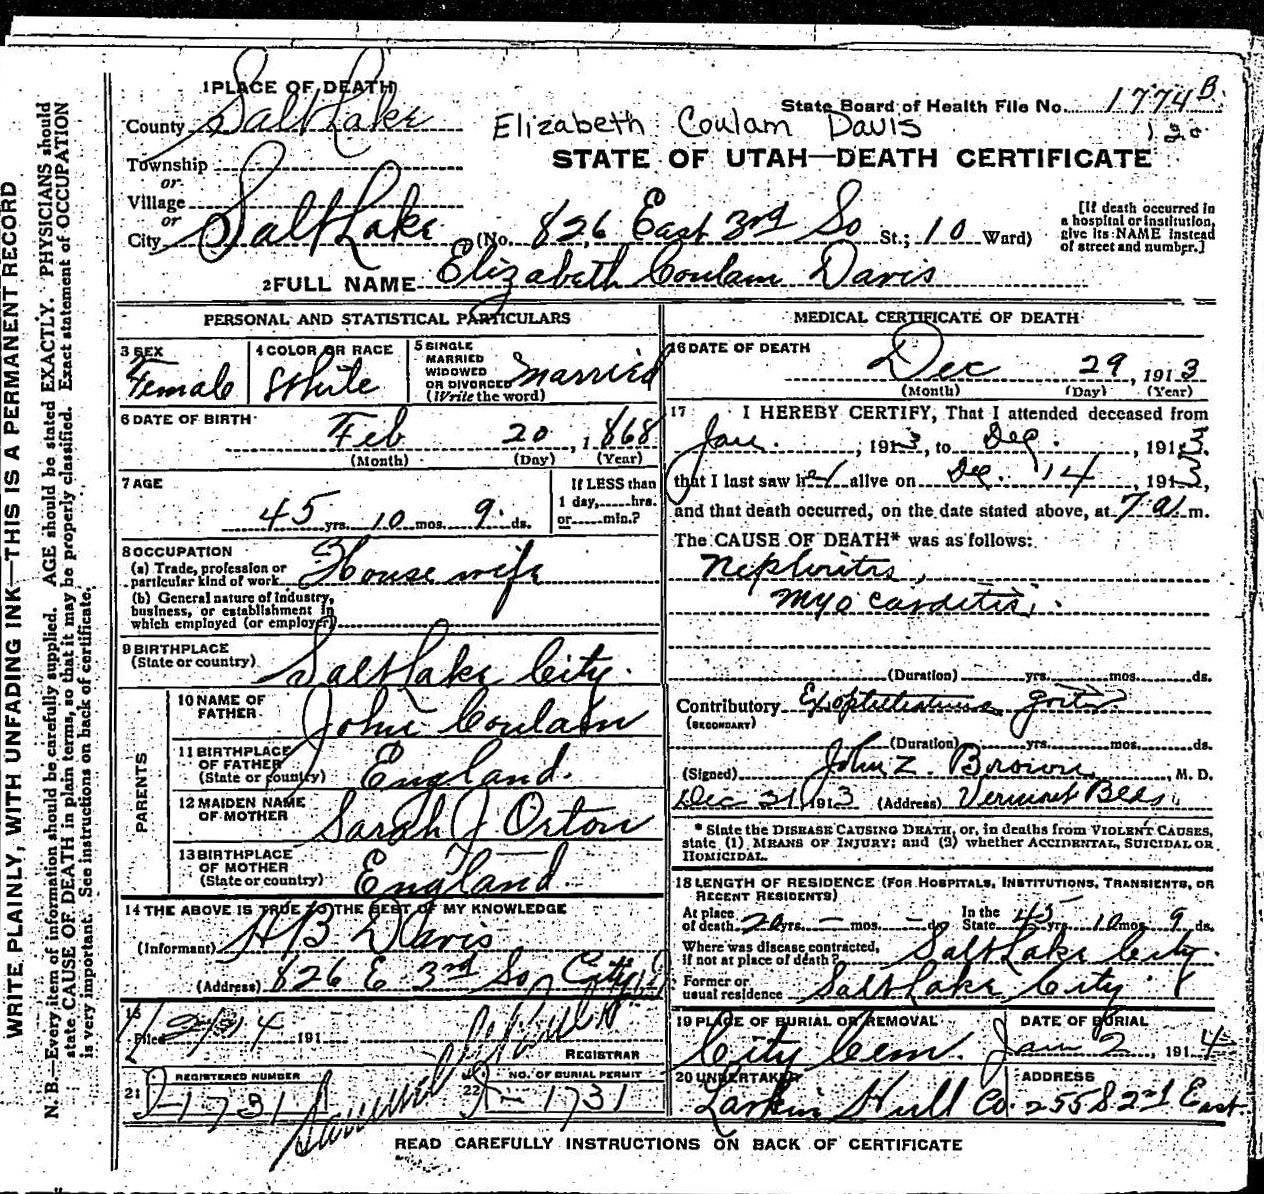 1 PLACE OF DEATH
County Salt Lake
State Board of Health File No. 1774 B.
Elizabeth Coulam Davis
STATE OF UTAH—DEATH CERTIFICATE
Township
or
Village
or
City Salt Lake (No. 826 East 3rd So St.; 10 Ward)
[If death occurred in
a hospital or institution,
give its NAME instead
of street and number.]
2 FULL NAME Elizabeth Coulam Davis
PERSONAL AND STATISTICAL PARTICULARS
3 SEX
Female
4 COLOR OR RACE
White
5 SINGLE
MARRIED
WIDOWED
OR DIVORCED
(Write the word)
Married
6 DATE OF BIRTH
Feb 20, 1868
(Month) (Day) (Year)
7 AGE
45 yrs. 10 mos. 9 ds.
If LESS than
1 day, hrs.
or min.?
8 OCCUPATION
(a) Trade, profession or
particular kind of work House wife
(b) General nature of industry,
business, or establishment in
which employed (or employer)
9 BIRTHPLACE
(State or country) Salt Lake City.
PARENTS
10 NAME OF
FATHER John Coulam
11 BIRTHPLACE
OF FATHER
(State or country) England.
12 MAIDEN NAME
OF MOTHER Sarah J Orton
13 BIRTHPLACE
OF MOTHER
(State or country) England.
14 THE ABOVE IS TRUE TO THE BEST OF MY KNOWLEDGE
(Informant) H B Davis
(Address) 826 E. 3rd So, City
15
Filed 191
REGISTRAR
REGISTERED NUMBER
21 1731
NO. OF BURIAL PERMIT
22 1731
MEDICAL CERTIFICATE OF DEATH
16 DATE OF DEATH
Dec 29, 1913
(Month) (Day) (Year)
17 I HEREBY CERTIFY, That I attended deceased from
Jan., 1913, to Dec., 191
that I last saw her alive on Dec. 14, 191
and that death occurred, on the date stated above, at 7 a.m.
The CAUSE OF DEATH* was as follows:
Nephritis,
Myocarditis.
(Duration) yrs. mos. ds.
Contributory Exopthalmic goitre
(SECONDARY)
(Duration) yrs. mos. ds.
(Signed) John Z. Brown, M. D.
Dec 31, 1913 (Address) Vermont Bldg.
* State the DISEASE CAUSING DEATH, or, in deaths from VIOLENT CAUSES,
state (1) MEANS OF INJURY; and (2) whether ACCIDENTAL, SUICIDAL OR
HOMICIDAL.
18 LENGTH OF RESIDENCE (FOR HOSPITALS, INSTITUTIONS, TRANSIENTS, OR
RECENT RESIDENTS)
At place
of death 20 yrs. — mos. — ds.
In the
State 45 yrs. 10 mos. 9 ds.
Where was disease contracted,
if not at place of death? Salt Lake City.
Former or
usual residence Salt Lake City
19 PLACE OF BURIAL OR REMOVAL
City Cem.
DATE OF BURIAL
Jan 2, 1914
20 UNDERTAKER
Larkin Hull Co.
ADDRESS
255 S 2nd East
READ CAREFULLY INSTRUCTIONS ON BACK OF CERTIFICATE
WRITE PLAINLY, WITH UNFADING INK—THIS IS A PERMANENT RECORD
N. B.—Every item of information should be carefully supplied. AGE should be stated EXACTLY. PHYSICIANS should
state CAUSE OF DEATH in plain terms, so that it may be properly classified. Exact statement of OCCUPATION
is very important. See instructions on back of certificate.